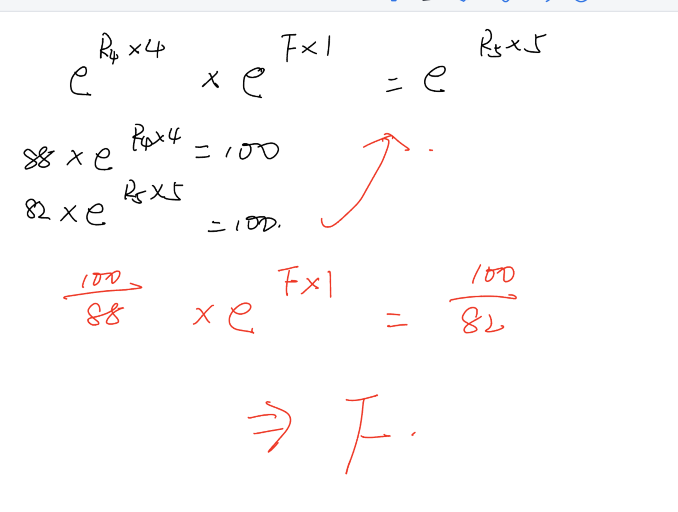 e^{R₄×4} × e^{F×1} = e^{R₅×5}
88 × e^{R₄×4} = 100
82 × e^{R₅×5} = 100.
100/88 × e^{F×1} = 100/82
⇒ F.